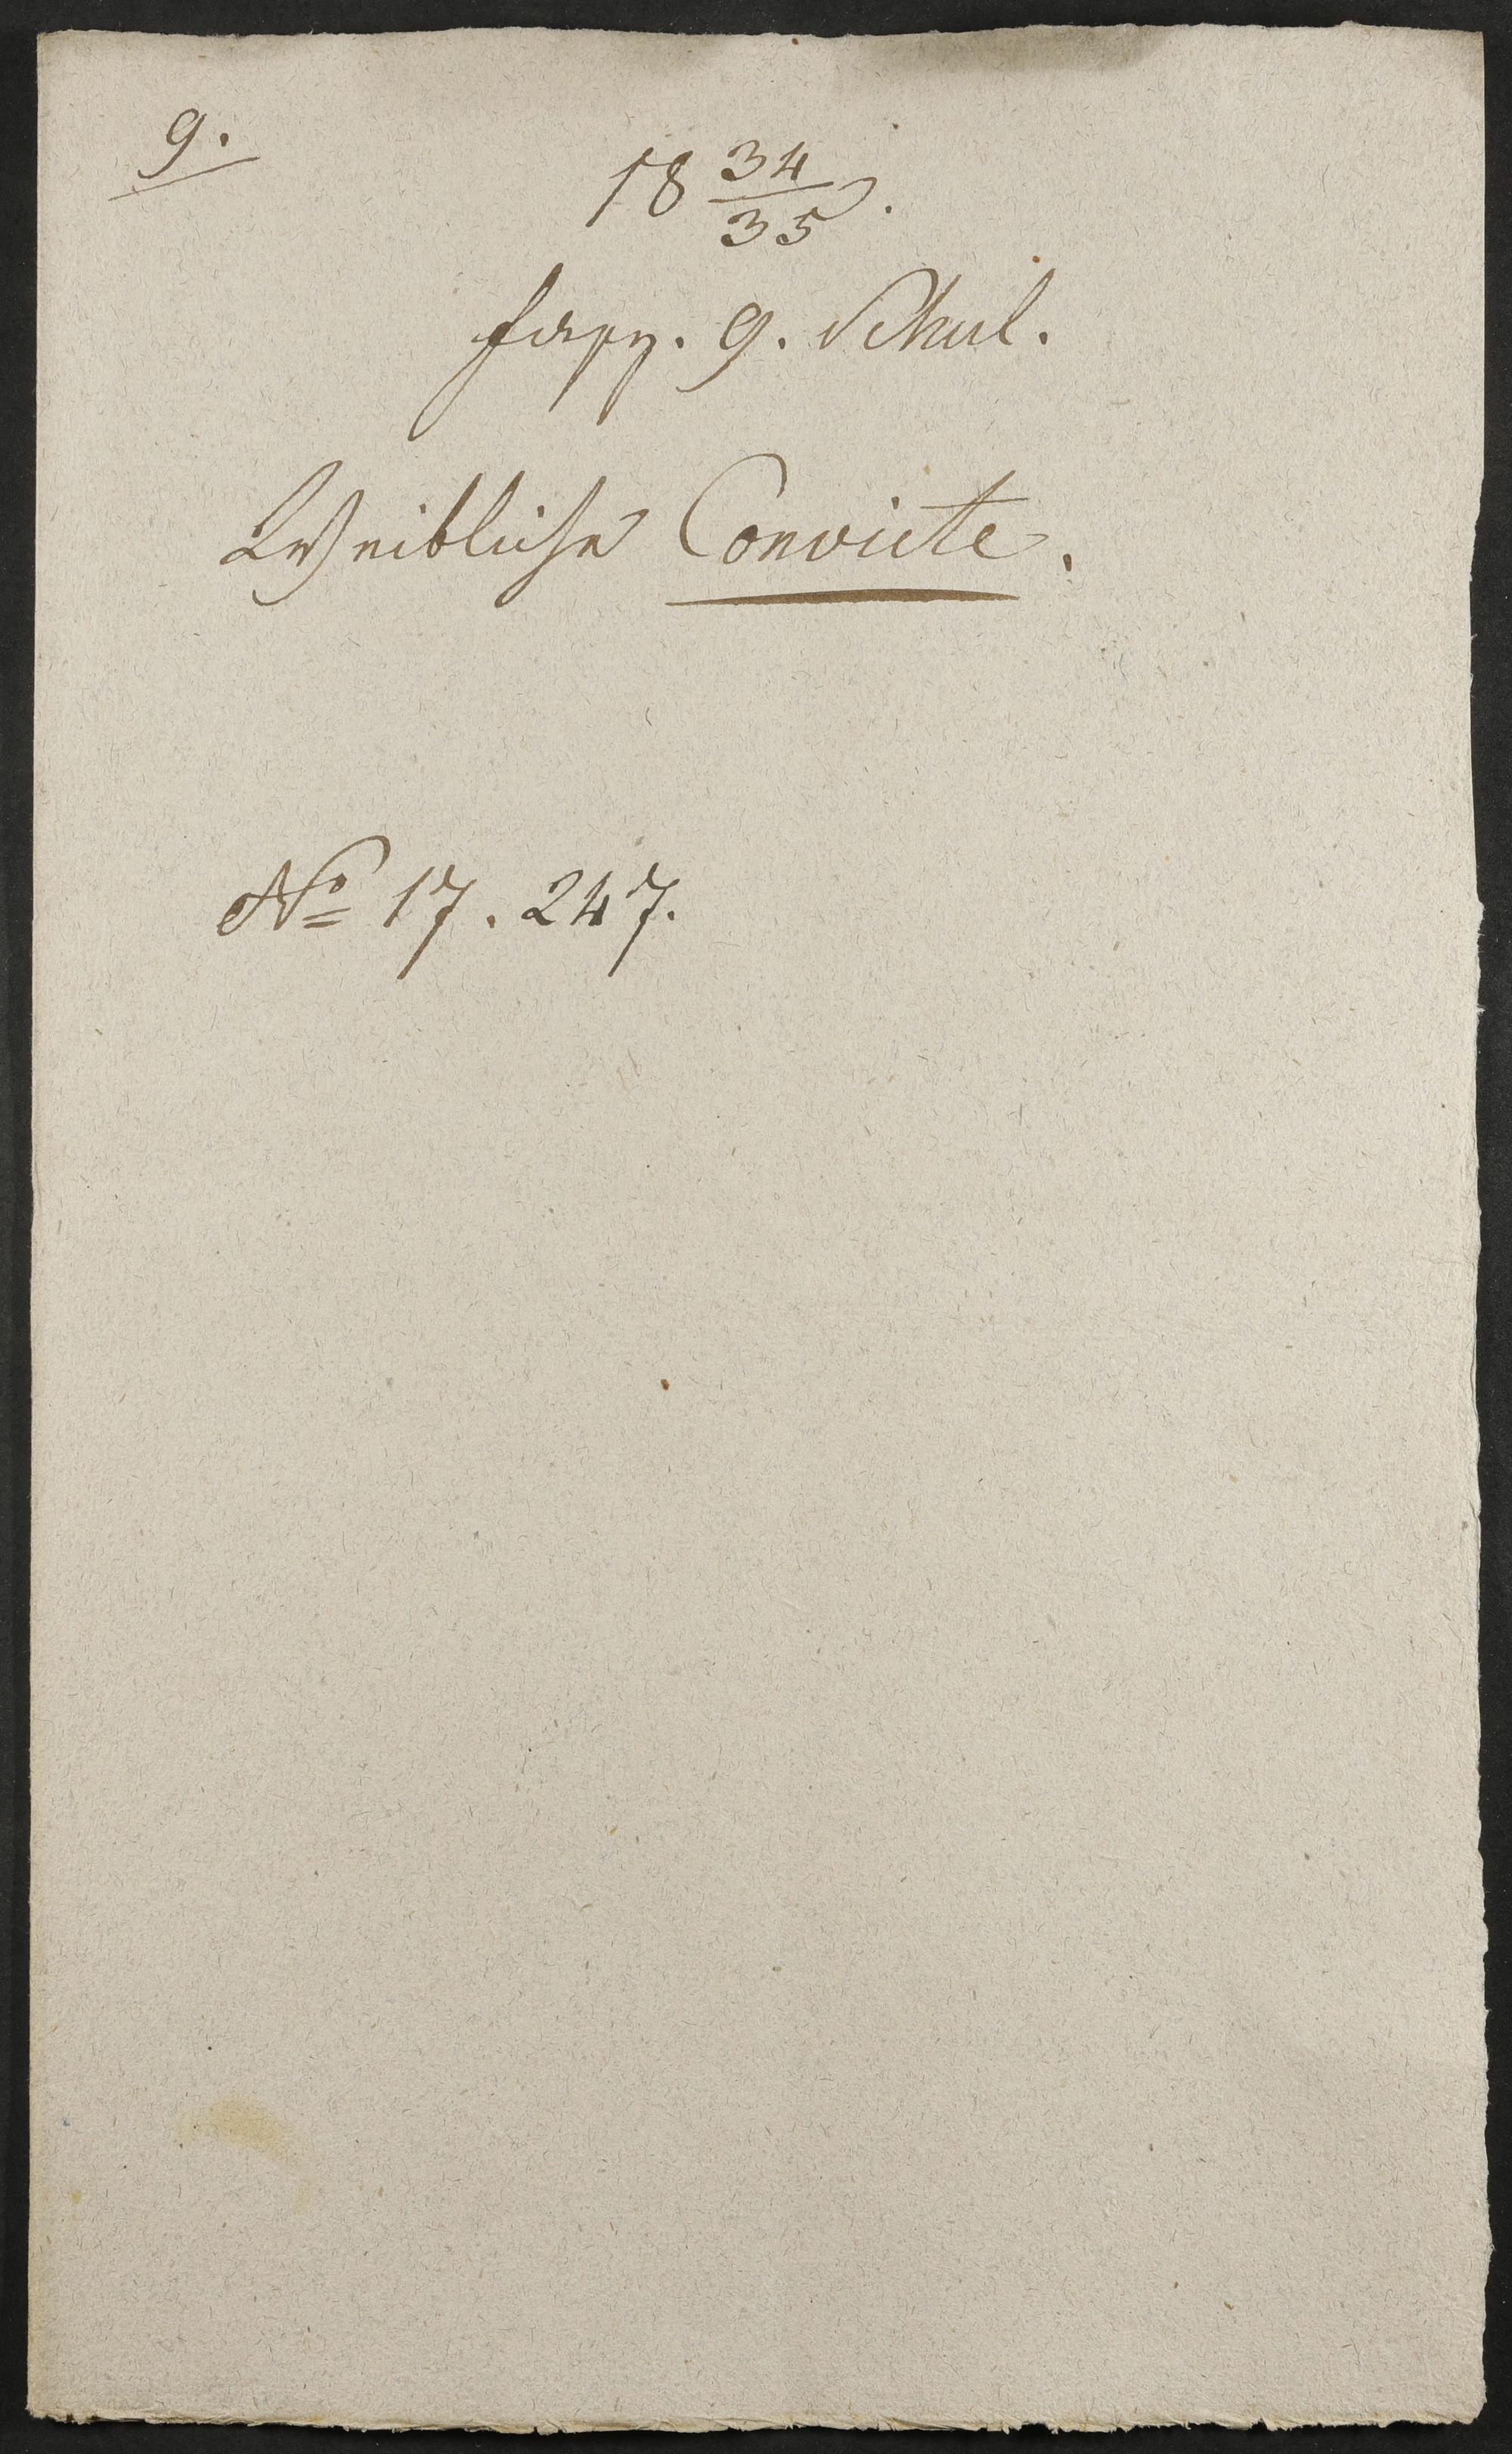 9.
18 34/35.
Fasz. 9. Schul.
Weibliche Convicte.
No 17. 247.